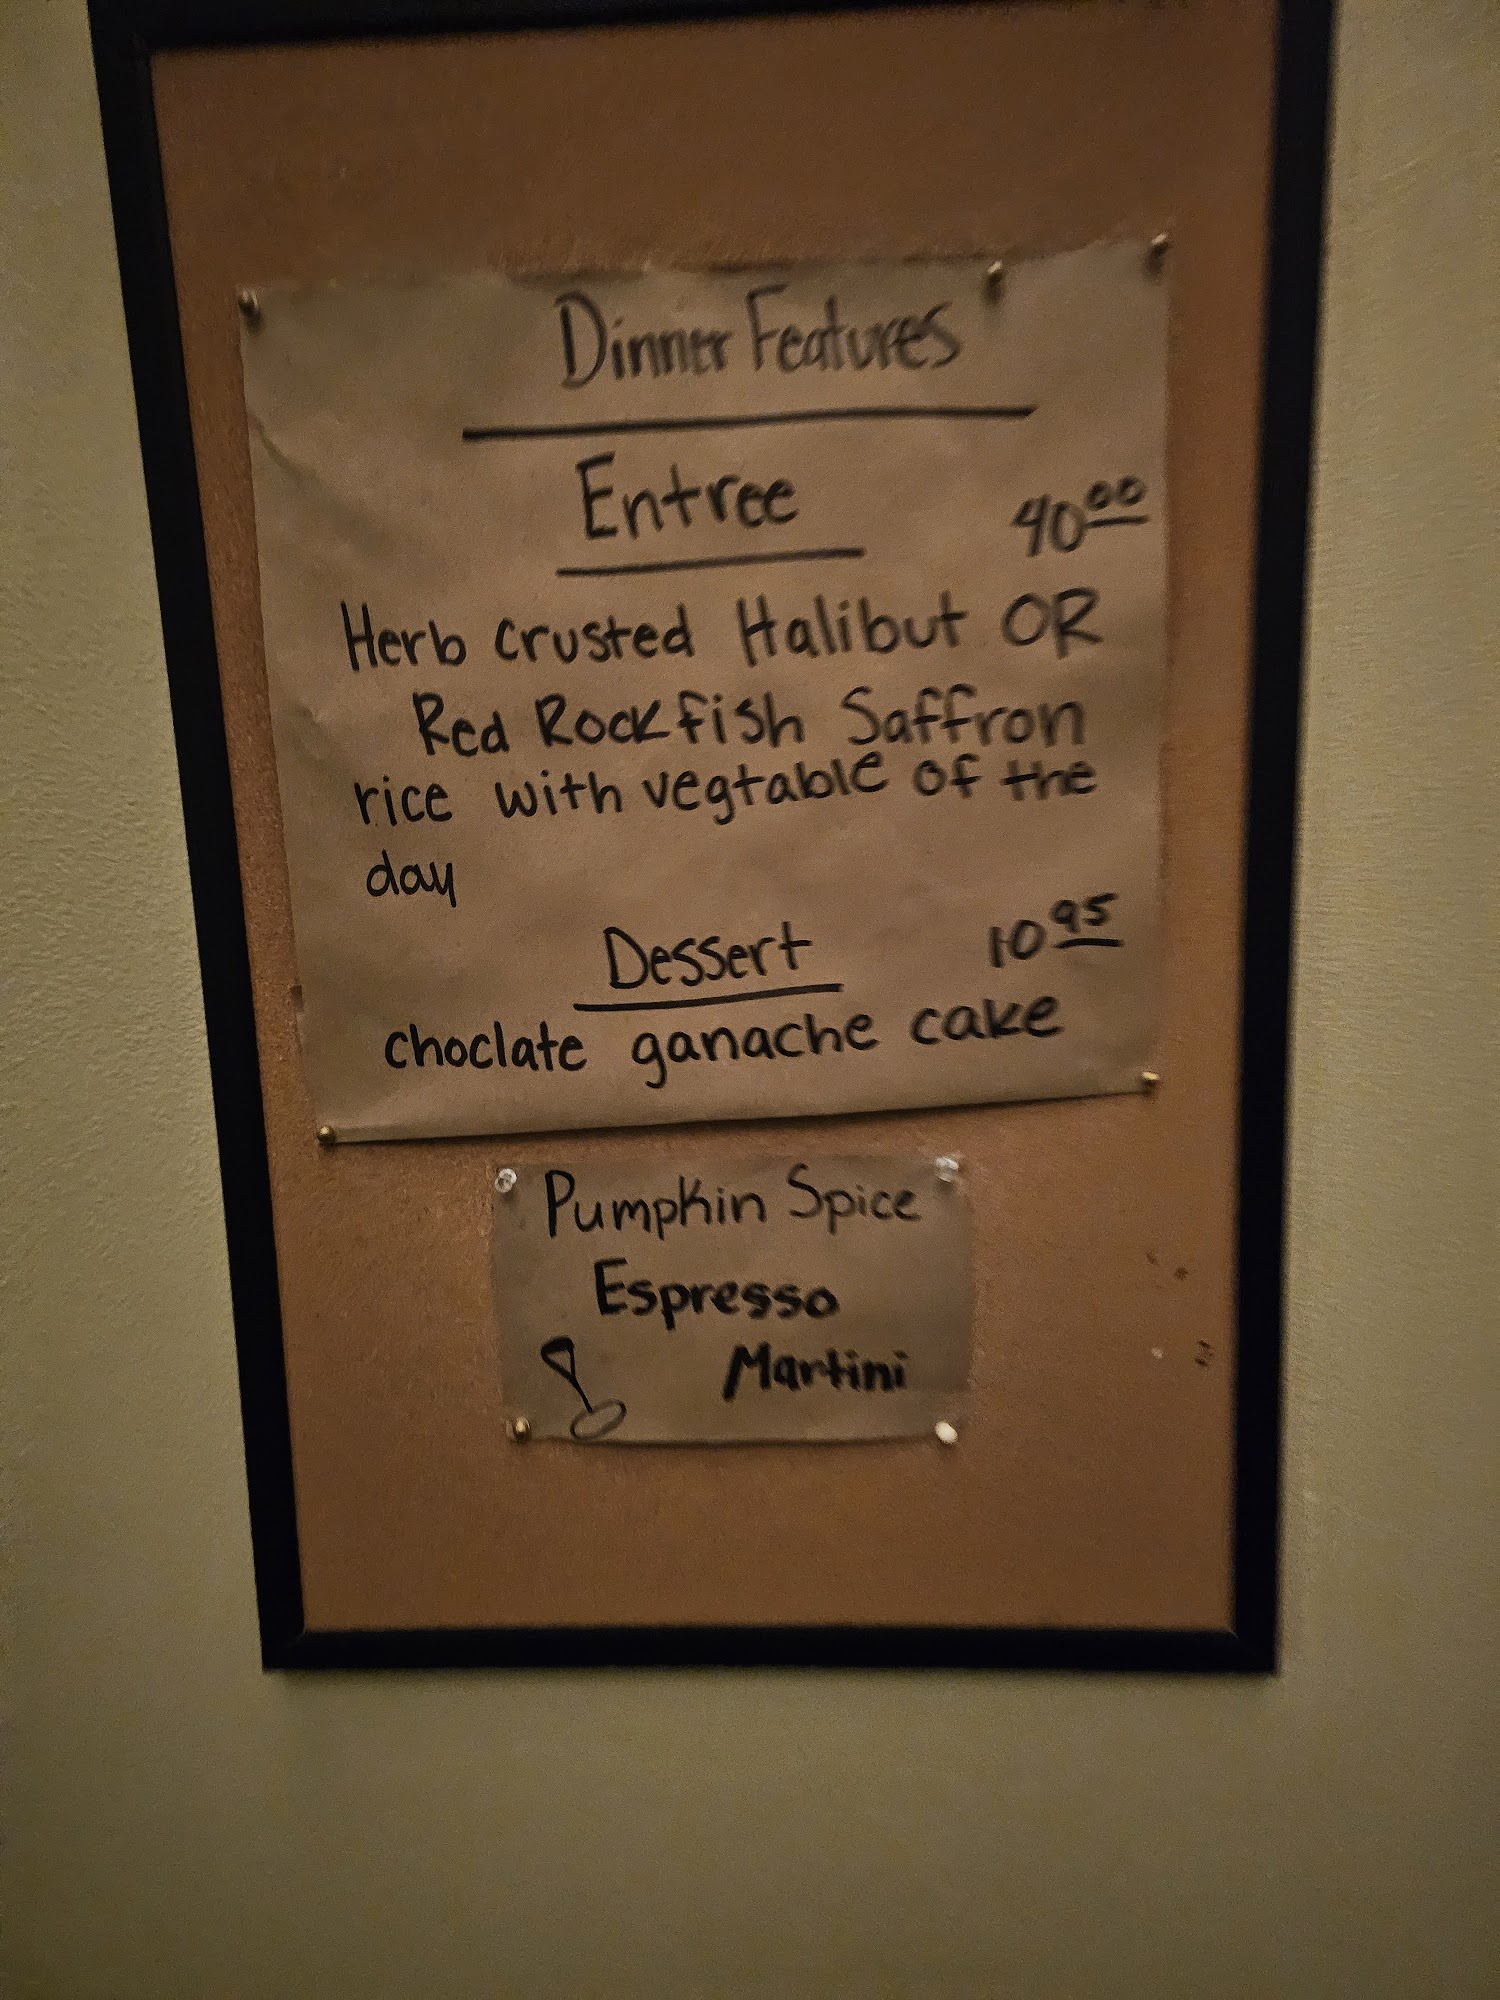 Dinner Features
Entree
40 00
Herb crusted Halibut OR
Red Rockfish Saffron
rice with vegtable of the
day
Dessert
10 95
choclate ganache cake
Pumpkin Spice
Espresso
Martini